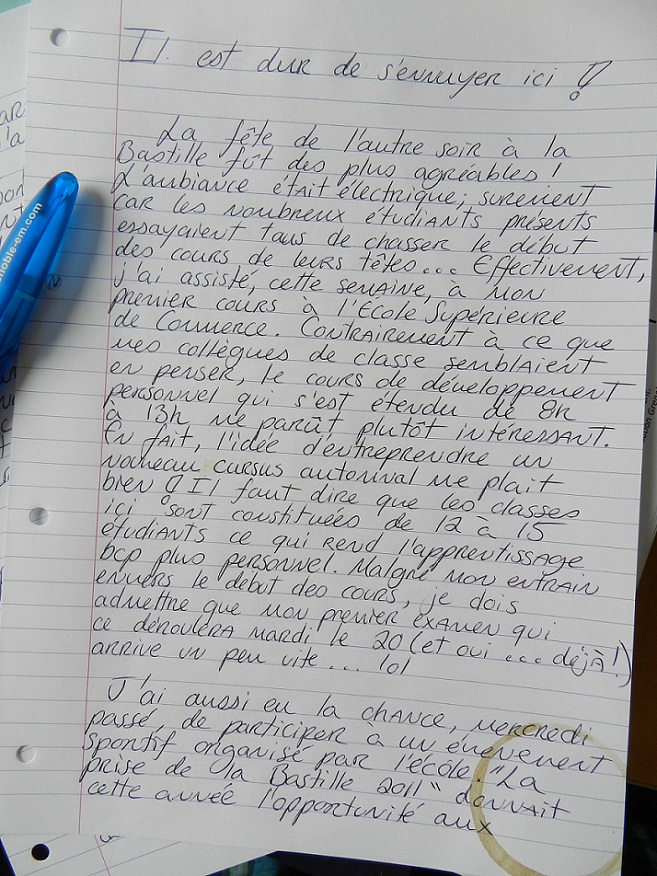 Il est dur de s'ennuyer ici !
La fête de l'autre soir à la
Bastille fût des plus agréables !
L'ambiance était électrique; surement
car les nombreux étudiants présents
essayaient tous de chasser le début
des cours de leurs têtes... Effectivement,
j'ai assisté, cette semaine, à mon
premier cours à l'École Supérieure
de Commerce. Contrairement à ce que
mes collègues de classe semblaient
en penser, le cours de développement
personnel qui s'est étendu de 8h
à 13h me parût plutôt intéressant.
En fait, l'idée d'entreprendre un
nouveau cursus automnal me plait
bien ! Il faut dire que les classes
ici sont constituées de 12 à 15
étudiants ce qui rend l'apprentissage
bcp plus personnel. Malgré mon entrain
envers le début des cours, je dois
admettre que mon premier examen qui
ce déroulera mardi le 20 (et oui ... déjà !)
arrive un peu vite... lol
J'ai aussi eu la chance, mercredi
passé, de participer à un événement
sportif organisé par l'école. "La
prise de la Bastille 2011" donnait
cette année l'opportunité aux
noble-em.com